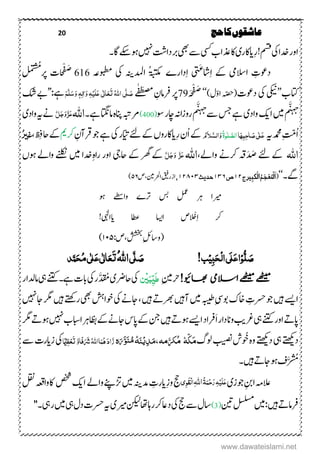 عاشقوں کا حج 20
اور خدا کی قسم! ریاکاری کا عذاب کسی سے بھی برداشت نہیں ہو سکے گا۔
دعوتِ اسلامی کے اِشاعتی اِدارے مکتبۃ المدینہ کی مطبوعہ 616 صفحات پر مُشتَمِل
کتاب ”نیکی کی دعوت (حصّہ اوّل)“ صَفْحَہ 79 پر فرمانِ مصطَفٰے صَلَّی اللہُ تَعَالٰی عَلَیْہِ وَاٰلِہٖ وَسَلَّم ہے: ”بے شک
جہنَّم میں ایک وادی ہے جس سے جہنَّم روزانہ چار سو (400) مرتبہ پناہ مانگتا ہے۔ اللہ عَزَّوَجَلَّ نے یہ وادی
اُمّتِ محمدیہ عَلٰی صَاحِبِہَا الصَّلٰوۃُ وَالسَّلَام کے اُن رِیاکاروں کے لئے تیّار کی ہے جو قرآنِ کریم کے حافِظ، غیرُ
اللہ کے لئے صَدَقہ کرنے والے، اللہ عَزَّوَجَلَّ کے گھر کے حاجی اور راہِ خدا میں نکلنے والے ہوں
گے۔“ (اَلْمُعْجَمُ الْکَبِیْر ج۱۲ ص۱۳۶ حدیث ۱۲۸۰۳)
میرا ہر عمل بس ترے واسطے ہو
کر اِخلاص ایسا عطا یاالٰہی!
(وسائلِ بخشش ص۱۰۵)
صَلُّوْا عَلَی الْحَبِیْب! صَلَّی اللہُ تَعَالٰی عَلٰی مُحَمَّد
میٹھے میٹھے اسلامی بھائیو! حرمینِ طیّبین کی حاضِری مُقَدَّر کی بات ہے۔ کتنے ہی مالدار
ایسے ہیں جو حسرتِ خاکبوسیِ طیبہ میں آہیں بھرتے ہیں، جانے کی خواہش بھی رکھتے ہیں مگر جا نہیں
پاتے اور کتنے ہی غریب و نادار افراد ایسے ہوتے ہیں جن کے پاس جانے کے بظاہر اسباب نہیں ہوتے مگر
دیکھتے ہی دیکھتے وہ خوش نصیب لوگ مکّۂ مکرَّمہ و مدینۂ منوَّرہ زَادَہُمَا اللہُ شَرَفًا وَّتَعْظِیْمًا کی زیارت سے
مشرَّف ہو جاتے ہیں۔
علامہ ابنِ جوزی عَلَیْہِ رَحْمَۃُ اللہِ الْقَوِی حج و زیارتِ مدینہ میں تڑپنے والے ایک شخص کا واقعہ نقل
فرماتے ہیں: میں مسلسل تین (3) سال سے حج کی دعا کر رہا تھا لیکن میری یہ حسرت دل ہی میں رہی۔“
www.dawateislami.net